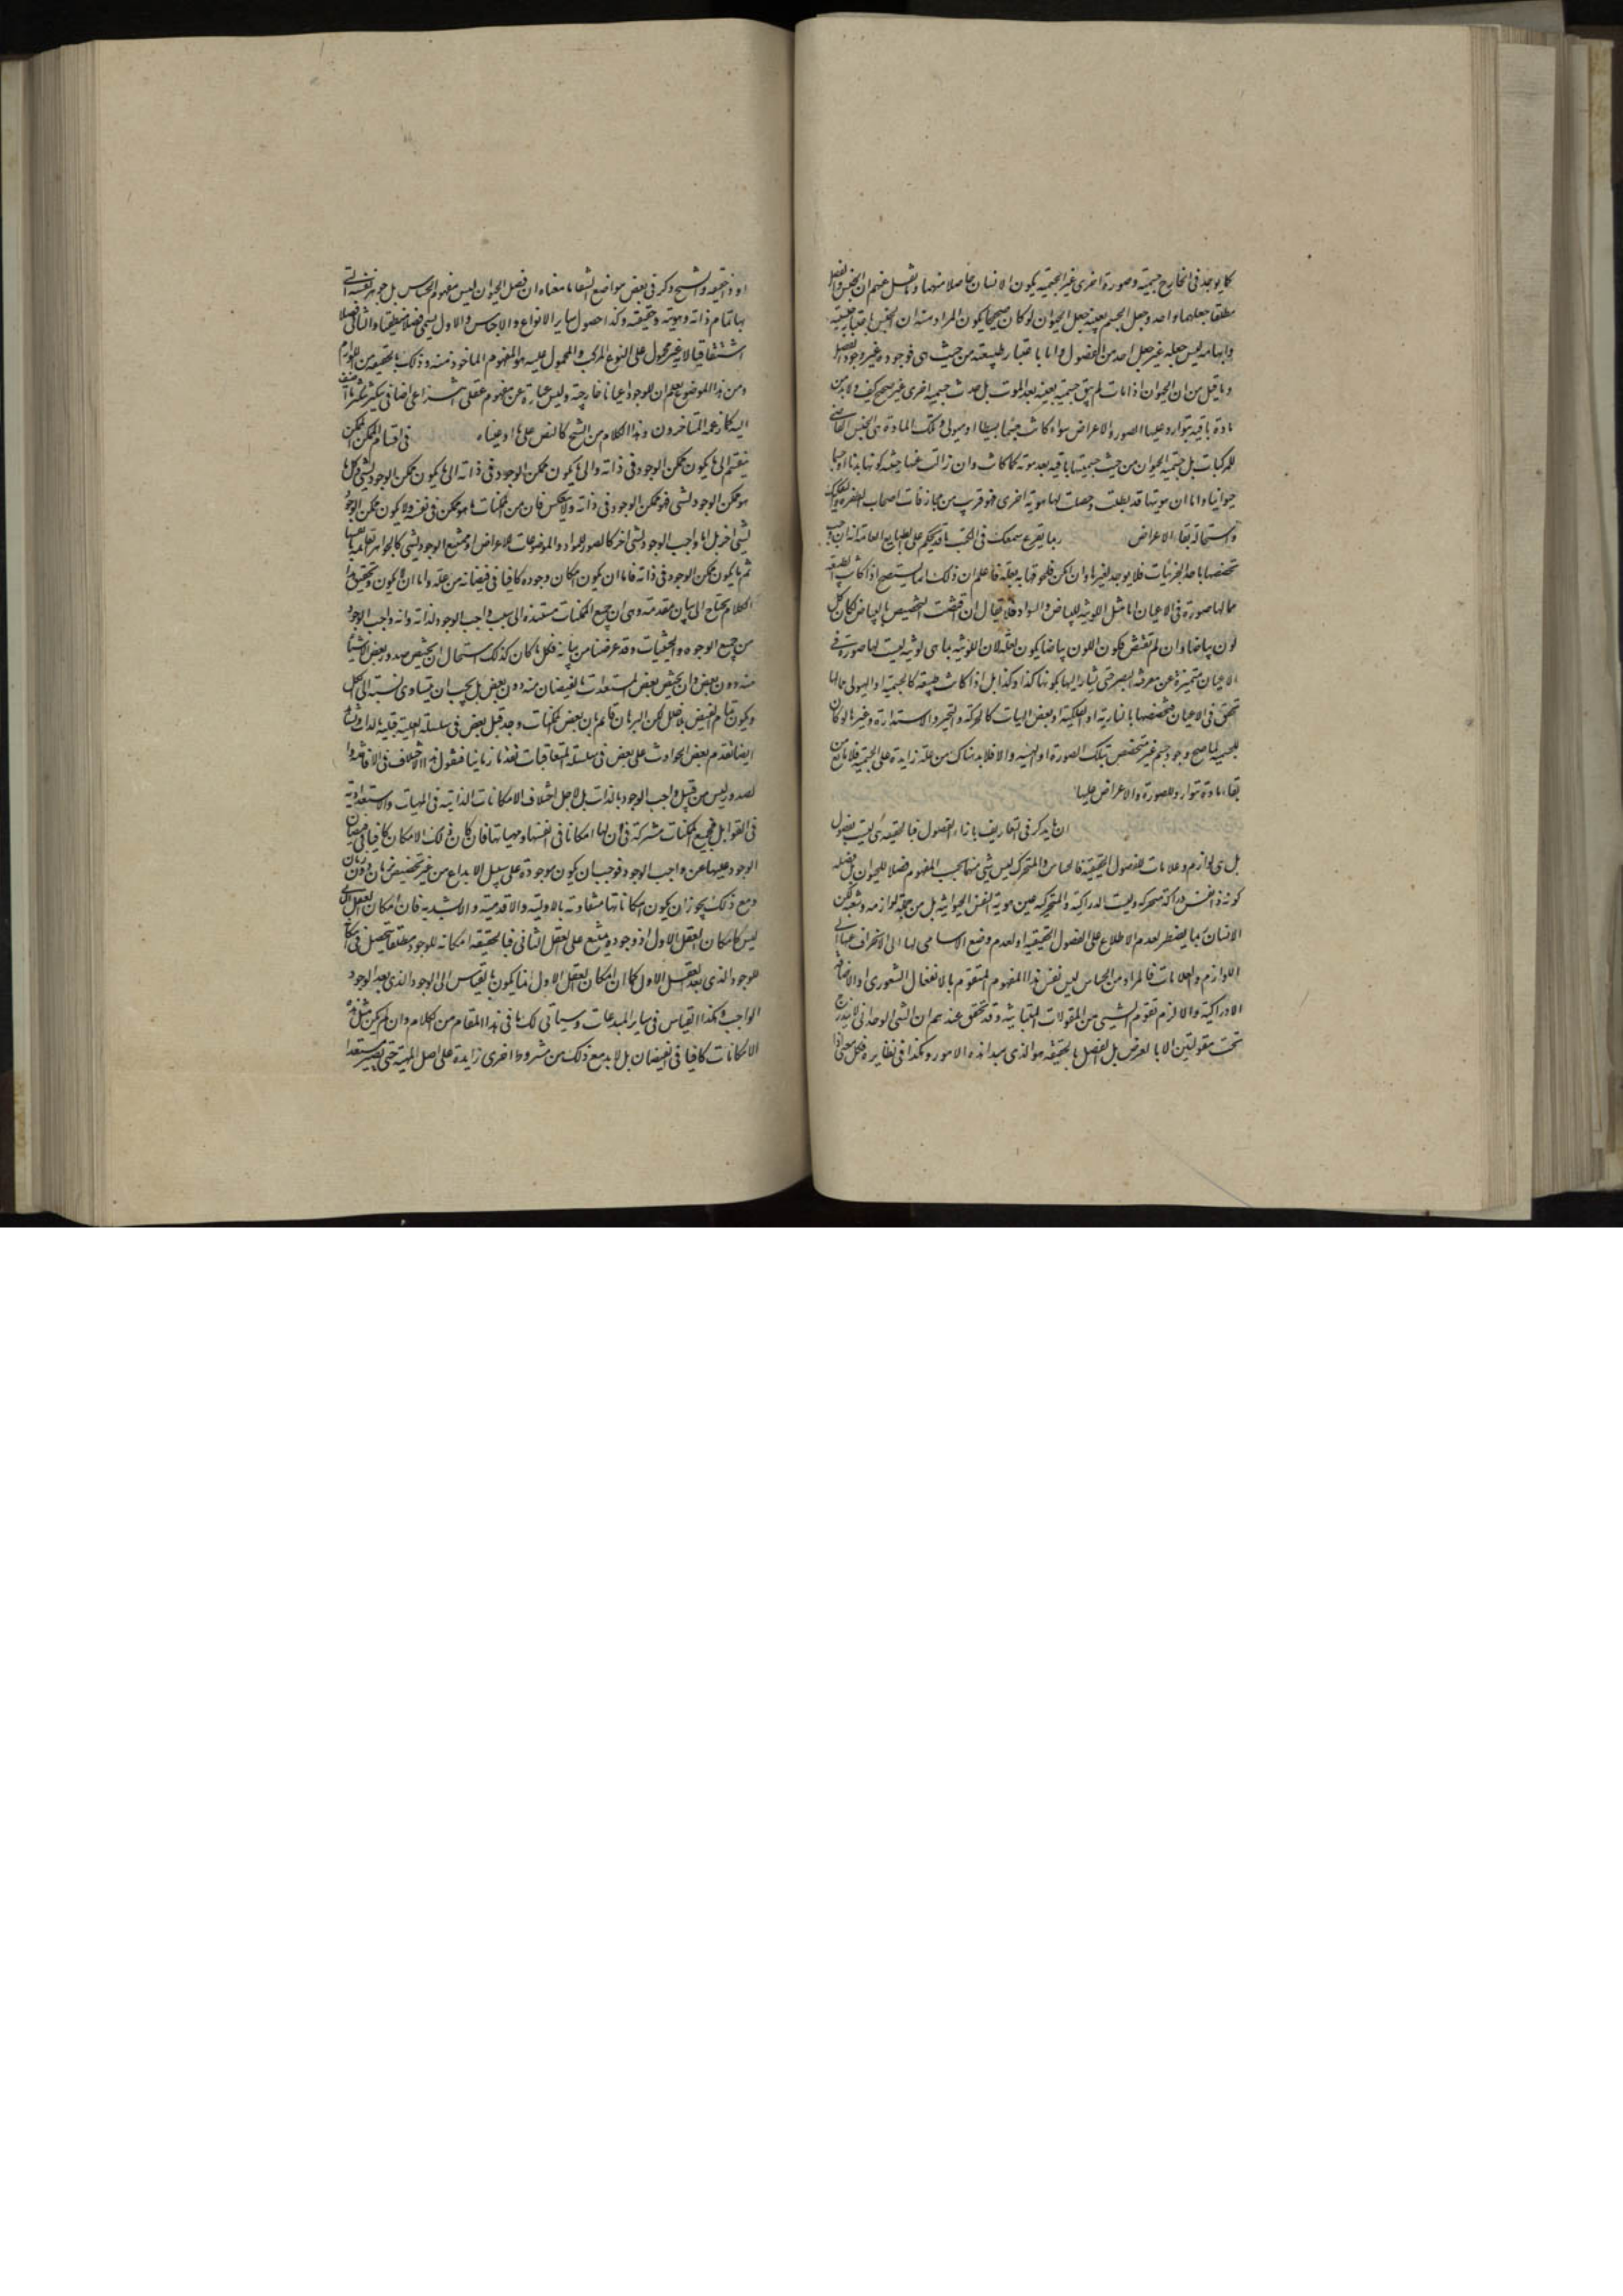 كما يوجد فى الخارج جسمية وصورة اخرى غير الجسمية يكون الانسان حاصلا منهما وما نقل عنهم ان الجنس والفصل
مطلقا جعلهما واحد وجعل الجسم بعينه جعل الحيوان لو كان صحيحا يكون المراد منه ان الجنس باعتبار طبيعته
وابهامه ليس جعله غير جعل احد من الفصول واما باعتبار طبيعته من حيث هى فوجوده غير وجود الفصل
وما قيل من ان الحيوان اذا مات لم يبق جسميته بعينه بعد الموت بل حدث جسمية اخرى غير صحيح كيف ولا بد من
مادة باقية يتوارد عليها الصور والاعراض سواء كانت جسما بسيطا او هيولى وتلك المادة هى الجنس القاصى
للمركبات بل جسمية الحيوان من حيث جسميتها باقية بعد موته كما كانت وان زالت عنها حيثية كونها بدنا او جسما
حيوانيا واما ان هويتها قد بطلت وحصلت لها هوية اخرى فهو قريب من مجازفات اصحاب الطفرة والتفكيك
واستحالة بقاء الاعراض ربما يقرع سمعك فى الكتب ما قد يحكم على الطبايع العامة انه ان وجب
تخصصها باحد الجزئيات فلا يوجد لغيرها وان امكن فلحوقها به بعلة فاعلم ان ذلك انما يستصح اذا كانت الطبيعة
مما لها صورة فى الاعيان اما مثل اللونية للبياض والسواد فلا يقال ان اقتضت التخصيص بالبياض لكان كل
لون بياضا وان لم تقتض فكون اللون بياضا يكون لعلة لان اللونية بما هى لونية ليست لها صورة فى
الاعيان متميزة عن مفرقية البصر حتى يشار اليها بكونها كذا وكذا بل اذا كانت طبيعة كالجسمية او الهيولى مما لها
تحقق فى الاعيان فتخصصها بالنارية او الفلكية او بعض الهيات كالحركة والتحيز والاستدارة وغيرها لو كان
للجسمية لما صح وجود جسم غير متخصص بتلك الصورة او الهيئة والا فلا بد هناك من علة زايدة على الجسمية فلا مانع من
بقاء مادة تتوارد الصورة والاعراض عليها
ان ما يذكر فى التعاريف بازاء الفصول فبالحقيقة هى ليست بفصول
بل هى لوازم وعلامات للفصول الحقيقية فالحساس والمتحرك ليس شئ منهما بحسب المفهوم فصلا للحيوان بل فصله
كونه ذا نفس دراكة متحركة وليست الدراكية والمتحركية عين هوية النفس الحيوانية بل من جملة لوازمه وشعبه لكن
الانسان ربما يضطر لعدم الاطلاع على الفصول الحقيقية او لعدم وضع الاسامى لها الى الانحراف عنها الى
اللوازم والعلامات فالمراد من الحساس ليس نفس هذا المفهوم المتقوم بالانفعال الشعورى او الاضافة
الادراكية والا لزم تقوم الشئ من المقولات المتباينة وقد تحقق عندهم ان الشئ الوحدانى لا يندرج
تحت مقولتين الا بالعرض بل الفصل بالحقيقة هو الذى مبدأ هذه الامور وهكذا فى نظايره فكل معنى اذا
او ذا حقيقة والشيخ ذكر فى بعض مواضع الشفا ما معناه ان فصل الحيوان ليس مفهوم الحساس بل جوهر نفسه التى
بها تمام ذاته وهويته وحقيقته وكذا فصول ساير الانواع والاجناس والاول يسمى فصلا منطقيا والثانى فصلا
اشتقاقيا لانه غير محمول على النوع المركب والمحمول عليه هو المفهوم الماخوذ منه وذلك بالحقيقة من اللوازم
ومن هذا الموضع يعلم ان للوجود اعيانا خارجية وليس عبارة عن مفهوم عقلى انتزاعى اضافى يتكثر بتكثر ما اضيف
اليه كما زعمه المتاخرون وهذا الكلام من الشيخ كالنص على ما ادعيناه فى اقسام الممكن الممكن
ينقسم الى ما يكون ممكن الوجود فى ذاته والى ما يكون ممكن الوجود فى ذاته الى ما يكون ممكن الوجود لشئ وكل ما
هو ممكن الوجود لشئ فهو ممكن الوجود فى ذاته ولا ينعكس فان من الممكنات ما هو ممكن فى نفسه ولا يكون ممكن الوجود
لشئ اخر بل اما واجب الوجود لشئ اخر كالصور للمواد والموضوعات للاعراض او ممتنع الوجود لشئ كالجواهر القائمة بانفسها
ثم ما يكون ممكن الوجود فى ذاته فاما ان يكون امكان وجوده كافيا فى فيضانه من علته واما ان لا يكون وتحقيق هذا
الكلام يحتاج الى بيان مقدمة وهى ان جميع الممكنات مستندة الى سبب واجب الوجود لذاته وانه واجب الوجود
من جميع الوجوه والحيثيات وقد عرضنا من بيانه فكل ما كان كذلك استحال ان يختص صدور بعض الاشياء
عنه دون بعض وان يختص بعض المستعدات بالفيضان منه دون بعض بل يجب ان يتساوى نسبته الى الكل
ويكون تمام الفيض بلا خلل لكن البرهان قائم بان بعض الممكنات وجد قبل بعض فى سلسلة العلية قبلية بالذات ونشاهد
ايضا تقدم بعض الحوادث على بعض فى سلسلة المتعاقبات تقدما زمانيا فنقول هذا الاختلاف فى الافاضة وا
لصدور ليس من قبل واجب الوجود بالذات بل لاجل اختلاف الامكانات الذاتية فى المهيات والاستعدادية
فى القوابل فجميع الممكنات مشتركة فى ان لها امكانا فى انفسها ومهياتها فان كان ذلك الامكان كافيا فى فيضان
الوجود عليها من واجب الوجود فوجب ان يكون موجودة على سبيل الابداع من غير تخصيص بزمان دون زمان
ومع ذلك يجوز ان يكون امكاناتها متفاوتة بالاولية والاقدمية والاشدية فان امكان العقل الثانى
ليس كامكان العقل الاول اذ وجوده ممتنع على العقل الثانى فبالحقيقة امكانه للوجود مطلقا يتحصل فى امكان
الوجود الذى بعد العقل الاول كما ان امكان العقل الاول انما يكون بالقياس الى الوجود الذى بعد الوجود
الواجب وهكذا القياس فى ساير المبدعات وسياتى لك ما فى هذا المقام من الكلام وان لم يكن مثل هذه
الامكانات كافيا فى الفيضان بل لا بد مع ذلك من شروط اخرى زايدة على اصل المهية حتى يصير مستعدا